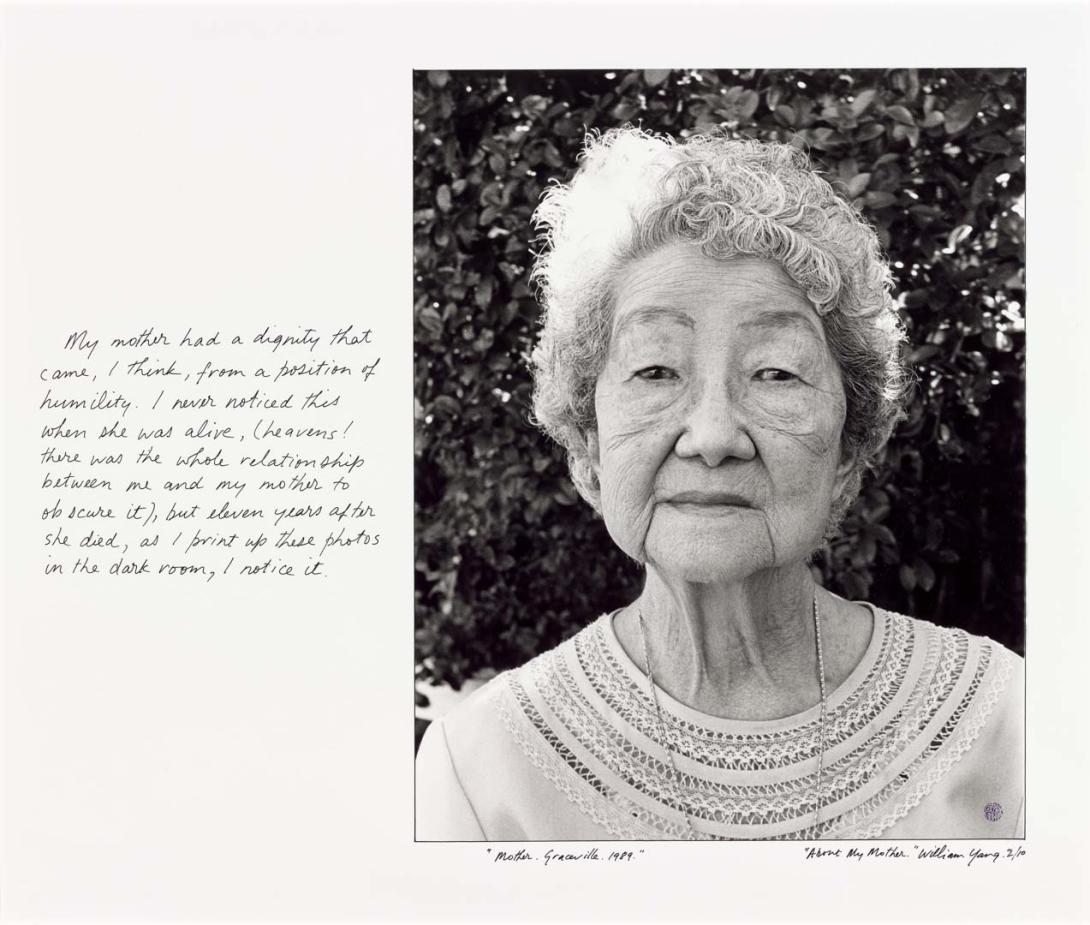 My mother had a dignity that
came, I think, from a position of
humility. I never noticed this
when she was alive, (heavens!
there was the whole relationship
between me and my mother to
obscure it), but eleven years after
she died, as I print up these photos
in the dark room, I notice it.
"Mother. Graceville. 1989."
"About My Mother." William Yang. 2/10